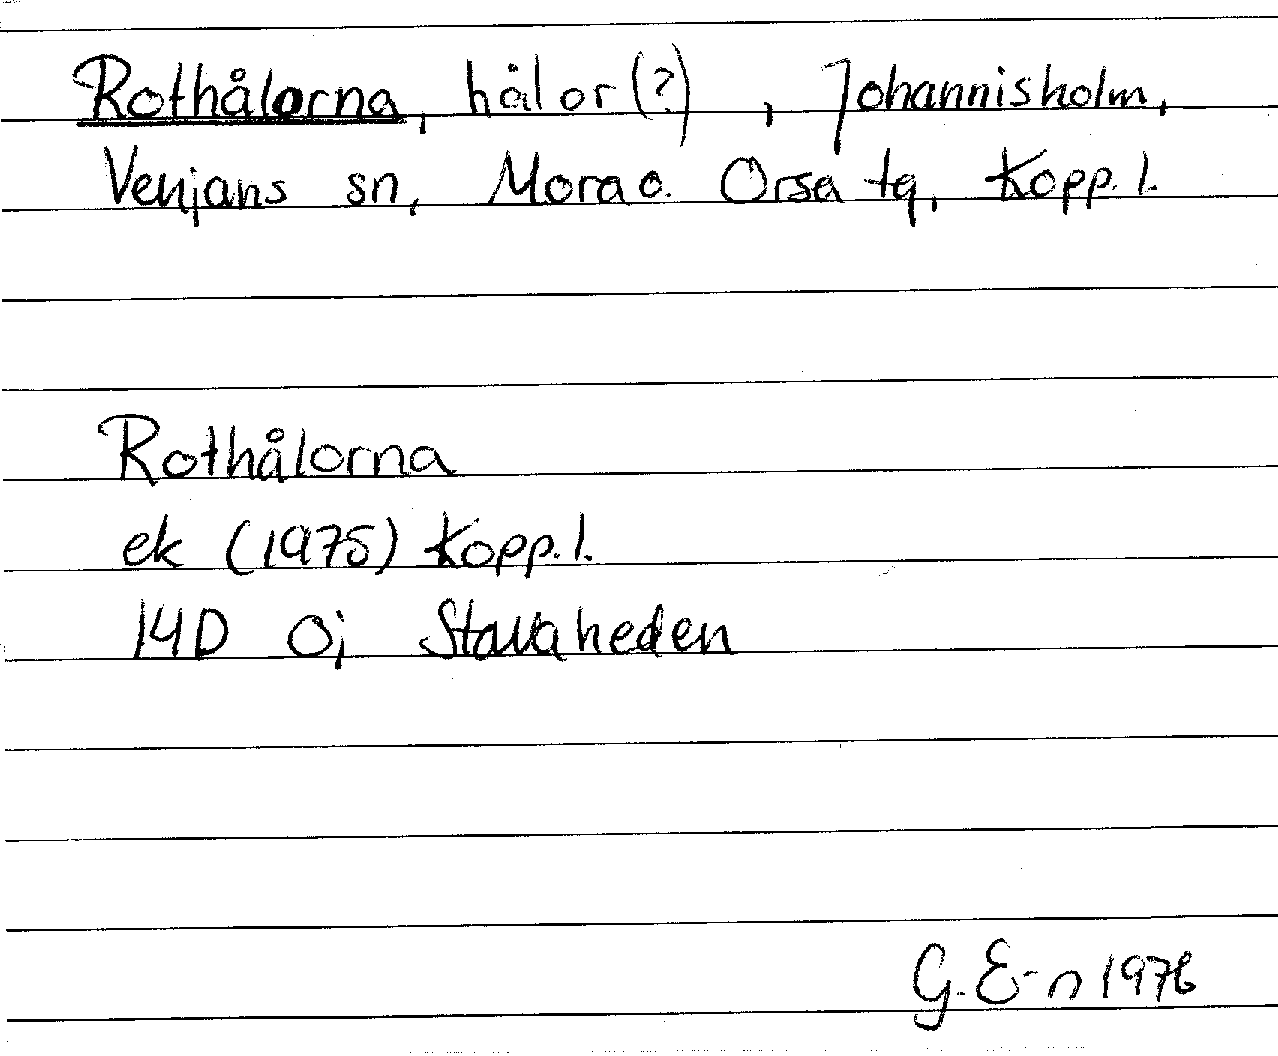 Rothålorna, hålor(?), Johannisholm,
Venjans sn, Mora o. Orsa tg, Kopp. l.
Rothålorna
ek (1975) Kopp. l.
14D 0j Stavaheden
G. E-n 1976